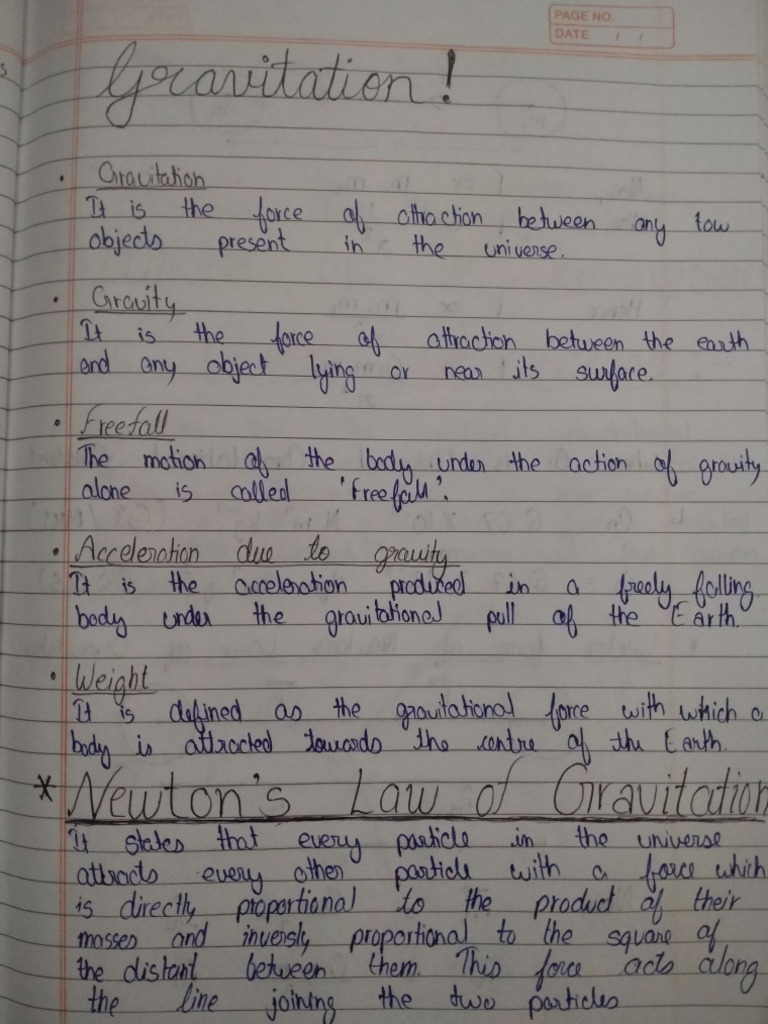 PAGE NO.
DATE / /
Gravitation!
• Gravitation
It is the force of attraction between any tow
objects present in the universe.
• Gravity
It is the force of attraction between the earth
and any object lying or near its surface.
• Freefall
The motion of the body under the action of gravity
alone is called 'freefall'.
• Acceleration due to gravity
It is the acceleration produced in a freely falling
body under the gravitational pull of the Earth.
• Weight
It is defined as the gravitational force with which a
body is attracted towards the centre of the Earth.
* Newton's Law of Gravitation
It states that every particle in the universe
attracts every other particle with a force which
is directly proportional to the product of their
masses and inversly proportional to the square of
the distant between them. This force acts along
the line joining the two particles